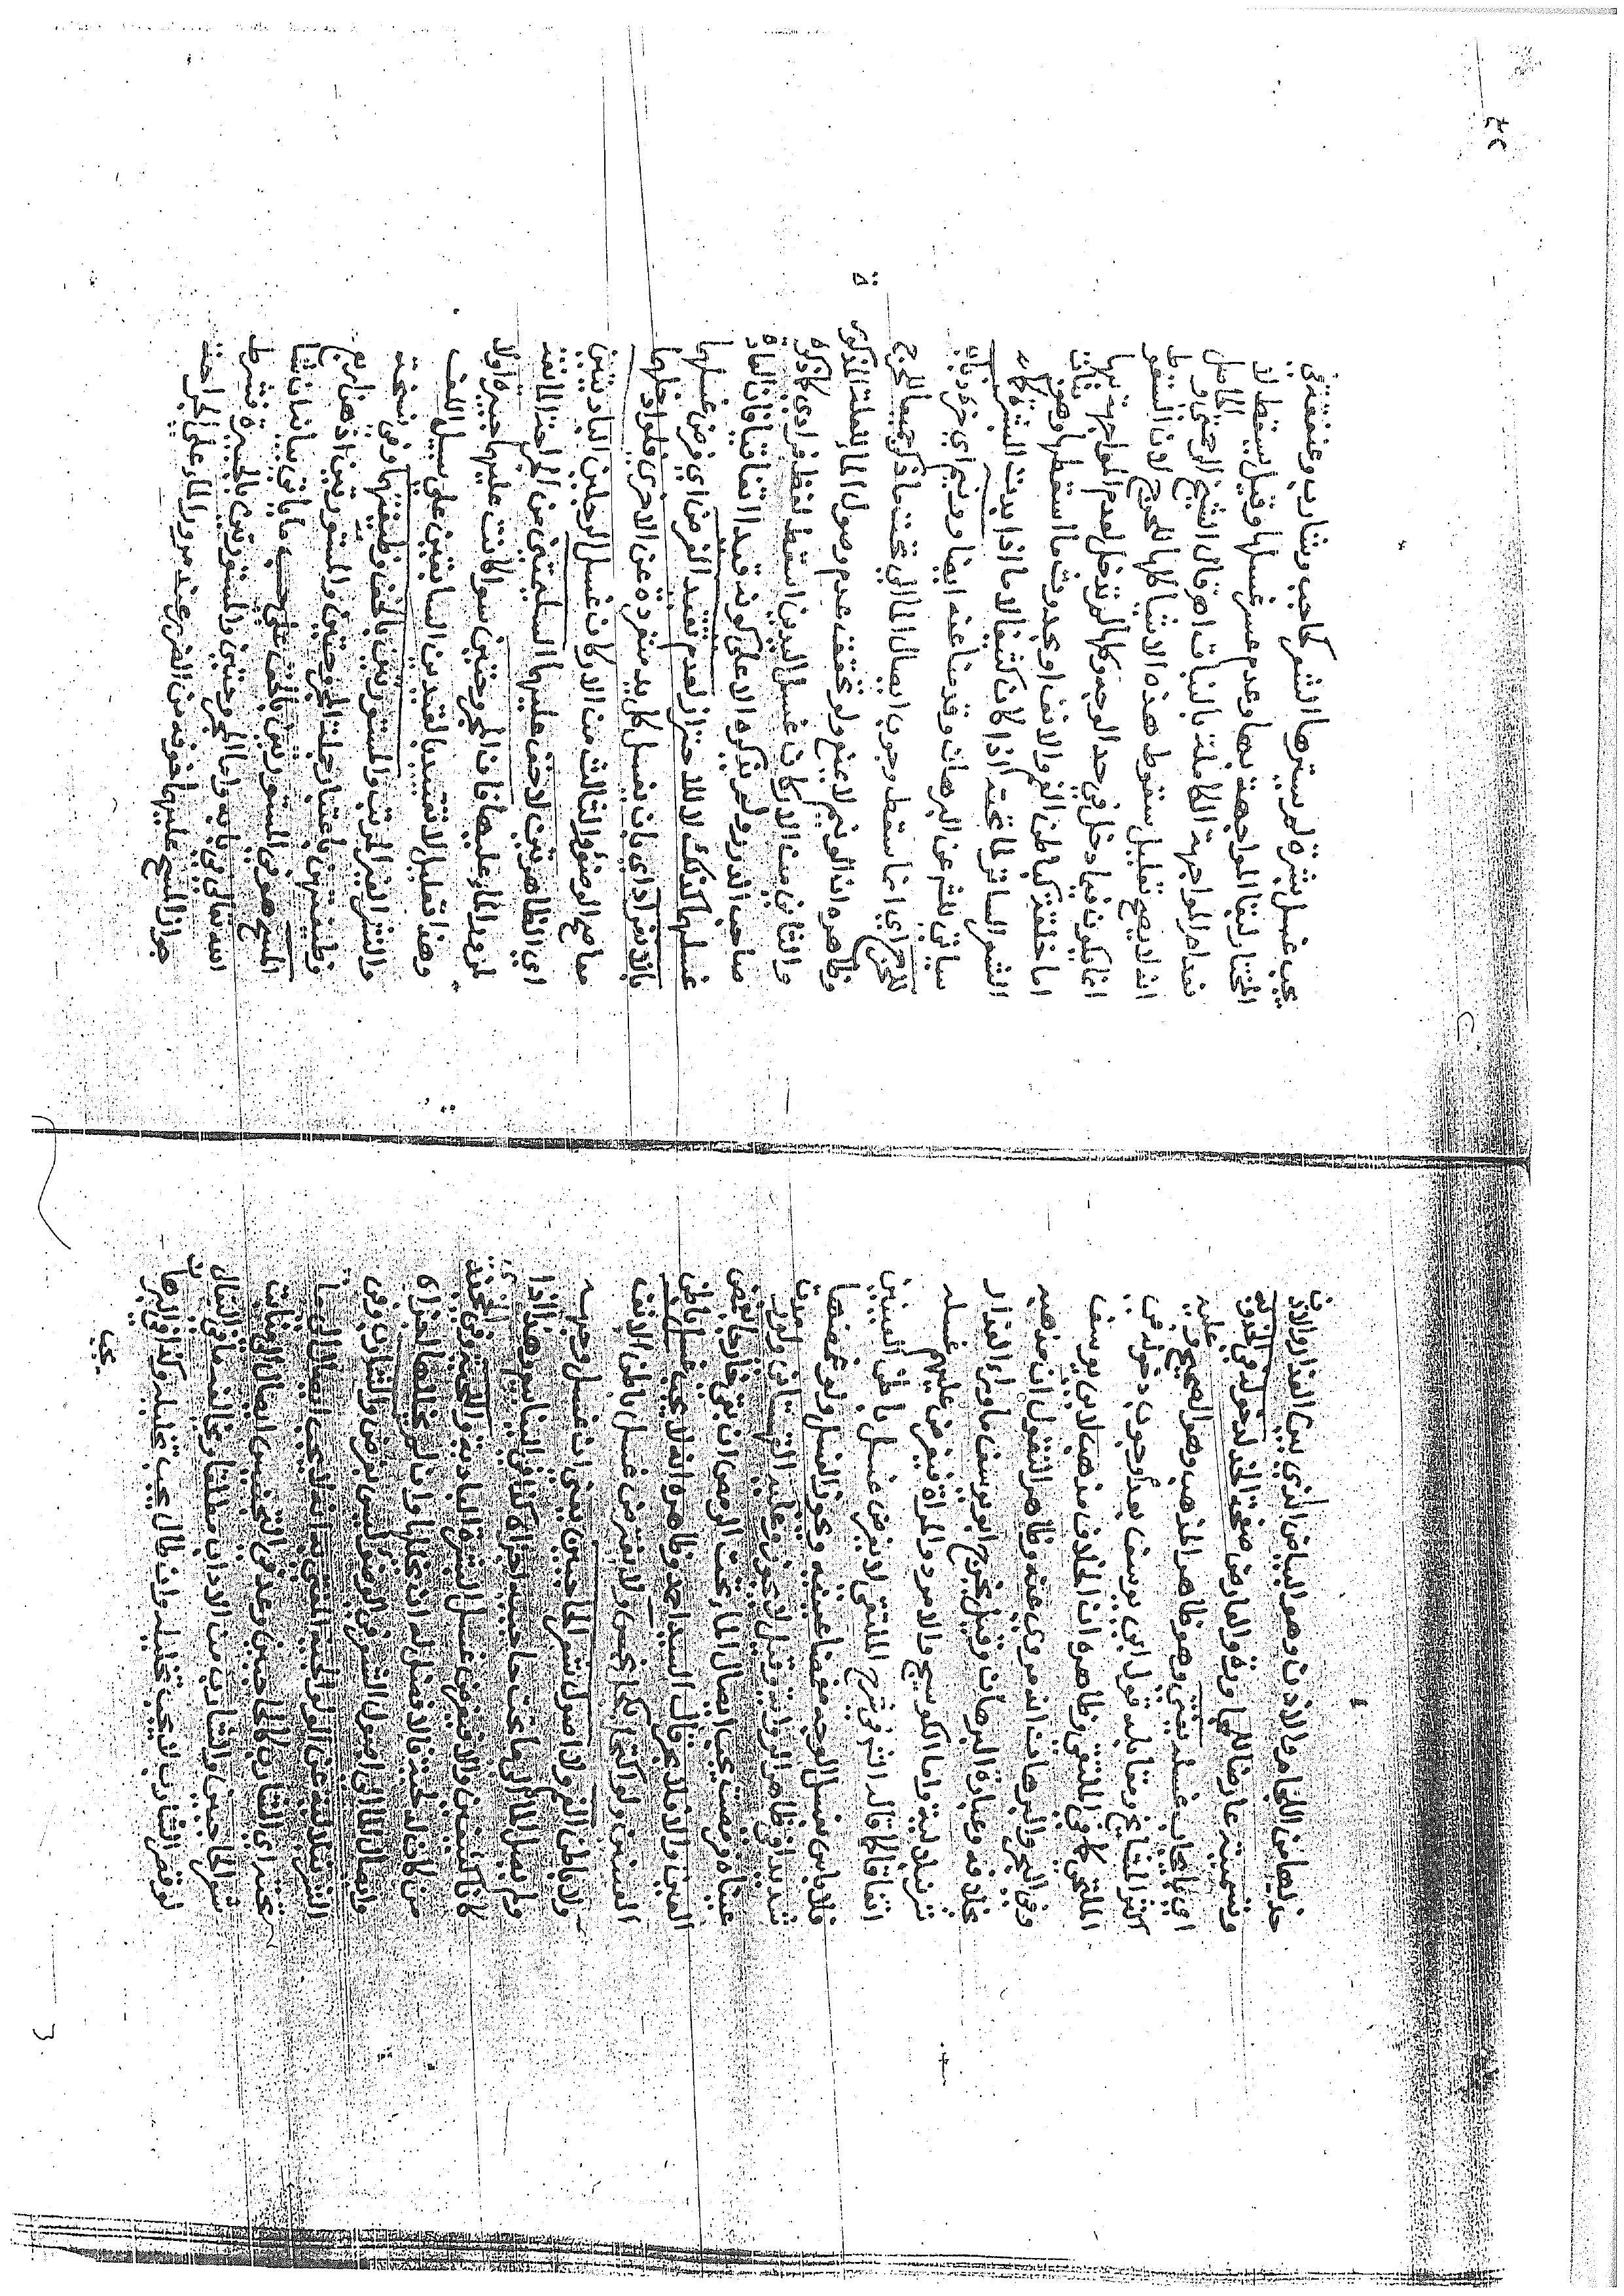 حذيهما من اللجام والاذن وهو البياض الذي بين العذار والاذن
وتسميته عارضا للمجاورة والعارض صفحة الخد لدخوله في الحد وبه
اي بايجاب غسله يفتى وهو ظاهر المذهب وهو الصحيح وعليه
اكثر المشايخ ومقابله قول ابي يوسف بعدم وجوب دخوله في
الملتحي كما في الملتقى وظاهره ان الخلاف مذهب لابي يوسف
وفي البحر والبرهان انه مروي عنه وظاهر النقول ان مذهبه
بخلافه وعبارة البرهان وقيل يخرج ابو يوسف ما وراء العذار
لحية واما الكوسج والامرد والمراة فيفرض عليهم غسله
اتفاقا كما قاله الش في شرح الملتقى لا يفرض غسل باطن العينين
فلا باس بغسل الوجه مغمضا عينيه ويجوز الغسل ولو غمضهما
شديدا في ظاهر الرواية وقيل لا يجوز وعليه القهستاني ولو رمدت
عيناه فرمصت يجب ايصال الماء تحت الرمص ان بقي خارجا بتغميض
العين والا فلا بحر قال السيد احمد وظاهره انه لا يجب غسل باطن
العينين ولو اكتحل بكحل نجس ولا يفترض غسل باطن الانف
ولا باطن الفم ولا اصول شعر الحاجبين يعني ان غسل وجهه
ولم يصل الماء الى ما تحت حاجبيه اجزاه كذا في الينابيع وهذا اذا
كانا كثيفين والا فيفرض غسل البشرة البادية واللحية وفي
من كان له لحية فالافضل له ان يخللها وان لم يخللها اجزاه
وايصال الماء الى اصول الشعر في الوضوء ليس بفرض والشارب وفي
الشرنبلالية عن الولوالجية المفتى به انه لا يجب ايصال الماء الى ما
تحته اي الشارب كالحاجبين وعد في التجنيس ايصال الى منابت
شعر الحاجبين والشارب من الاداب مطلقا ما في
لو قص الشارب لا يجب تخليله وان طال يجب تخليله وكذا في
يجب
يجب غسل بشرة لم يسترها الشعر كحاجب وشارب وعنفقة في
المختار لبقاء المواجهة بها وعدم عسر غسلها وقيل يسقط
لانعدام المواجهة الكاملة بالنبات اه قال الشيخ الرحمتي
انه لا يصح تعليل سقوط هذه الاشياء كلها للحرج لان السقوط
انما يكون فيما دخل في حد الوجه وكلها لم تدخل لعدم المواجهة بها
اما خلقة كباطن الفم والانف او بحدوث ما اسقطها وهو نبات
الشعر الساتر لما تحته اذا كان كثيفا لا ما اذا بدت البشرة
سياتي للش عن البرهان وقدمنا عنه ايضا
للحرج اي انما سقط وجوب ايصال الماء الى تحت ما ذكر جميعا للحرج
وظاهره ان الونيم لا يمنع ولو تحققت عدم وصول الماء للعلة المذكورة
والثاني من الاركان غسل اليدين اسقط لفظ فرادى كما ذكره
صاحب الدرر ولم يذكره الا على كونه قيدا اتفاقيا فان العادة
غسلهما كذلك لا للاحتراز لعدم تقيد الفرض اي فرض غسلهما
بالانفراد اي بان يغسل كل يد منفردة عن الاخرى فلو ادخلهما
معا صح الوضوء والثالث من الاركان غسل الرجلين الباديتين
اي الظاهرتين لا خف عليهما السليمتين من الجراحة المانعة
لمرور الماء عليهما فان المجروحتين سواء كانت عليهما جبيرة اولا
وهذا تعليل لا لتقييد بالقيدين السابقين على سبيل اللف
والنشر الغير المرتب والمستورتين بالخف وظيفتهما وفي نسخة
وظيفتهن باعتبار جملة المجروحتين والمستورتين اذ هن اربع
المسح هو في المستورتين بالخف على حسب ما ياتي بيانه ان شا
الله تعالى في بابه واما المجروحتين والمستورتين بالجبيرة بشرط
جواز المسح عليهما خوفه من الضرر عند مرور الماء على الجراحة